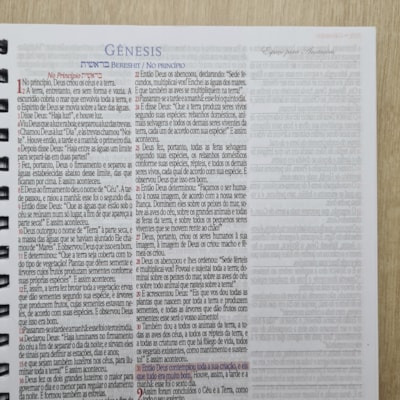 GÊNESIS
בראשית BERESHIT / NO PRINCÍPIO
Espaço para Anotações
No Princípio בראשית
1 No princípio, Deus criou os céus e a terra.
2 A terra, entretanto, era sem forma e vazia. A
escuridão cobria o mar que envolvia toda a terra, e
o Espírito de Deus se movia sobre a face das águas.
3 Disse Deus: "Haja luz!", e houve luz.
4 Viu Deus que a luz era boa; e separou a luz das trevas.
5 Chamou Deus à luz "Dia", e às trevas chamou "Noi-
te". Houve então, a tarde e a manhã: o primeiro dia.
6 Depois disse Deus: "Haja entre as águas um limite
para separá-las em duas partes!"
7 Fez, portanto, Deus o firmamento e separou as
águas estabelecidas abaixo desse limite, das que
ficaram por cima. E assim aconteceu.
8 Deus ao firmamento deu o nome de "Céu". A tar-
de passou, e raiou a manhã: esse foi o segundo dia.
9 Então disse Deus: "Que as águas que estão sob o
céu se reúnam num só lugar, a fim de que apareça a
parte seca!" E assim aconteceu.
10 Deus outorgou o nome de "Terra" à parte seca, e
a massa das águas que se haviam ajuntado Ele cha-
mou de "Mares". E observou Deus que isso era bom.
11 E determinou: "Que a terra seja coberta com to-
do tipo de vegetação: Plantas que dêem sementes e
árvores cujos frutos produzam sementes conforme
suas próprias espécies!" E assim aconteceu.
12 E, assim, a terra fez brotar toda a vegetação: ervas que
dão sementes segundo sua espécie, e árvores
que produzem frutos, cujas sementes estavam ne-
les, de acordo com suas espécies. E observou Deus
que isso era bom.
13 Passaram-se a tarde e a manhã: esse foi o terceiro dia.
14 Declarou Deus: "Haja luminares no firmamento
do céu, a fim de separar o dia da noite, e sirvam eles
de sinais para definir as estações, dias e anos;
15 e que sejam também luzeiros nos céus, para ilu-
minar a terra!" E assim aconteceu.
16 Deus fez os dois grandes luminares: o maior para
governar o dia e o menor para regular o andamento
da noite. E formou também as estrelas.
22 Então Deus os abençoou, declarando: "Sede fe-
cundos, multiplicai-vos! Enchei as águas dos mares;
e que também as aves se multipliquem na terra!"
23 Passaram-se a tarde e a manhã: esse foi o quinto dia.
24 E disse Deus: "Que a terra produza seres vivos
segundo suas espécies: rebanhos domésticos, ani-
mais selvagens e todos os demais seres viventes da
terra, cada um de acordo com sua espécie!" E assim
aconteceu.
25 Deus fez, portanto, todas as feras selvagens
segundo suas espécies, os rebanhos domésticos
conforme suas espécies, répteis, e todos os demais
seres vivos, cada qual de acordo com sua espécie. E
observou Deus que isso era bom.
26 Então Deus determinou: "Façamos o ser huma-
no à nossa imagem, de acordo com a nossa seme-
lhança. Dominem eles sobre os peixes do mar, so-
bre as aves do céu, sobre os grandes animais e todas
as feras da terra, e sobre todos os
répteis que rastejam sobre a terra!"
27 Deus, portanto, criou os seres humanos à sua
imagem, à imagem de Deus os criou: macho e fê-
mea os criou.
28 Deus os abençoou e lhes ordenou: "Sede férteis
e multiplicai-vos! Povoai e sujeitai toda a terra; do-
minai sobre os peixes do mar, sobre as aves do céu
e sobre todo animal que rasteja sobre a terra!"
29 E acrescentou Deus: "Eis que vos dou todas as
plantas que nascem por toda a terra e produzem
sementes, e todas as árvores que dão frutos com
sementes: esse será o vosso alimento!
30 Também dou a todos os animais da terra, a to-
das as aves do céu, a todos os répteis da terra, e
a todas as criaturas em que há fôlego de vida, todos
os vegetais existentes, como mantimento e susten-
to!" E assim aconteceu.
31 Então Deus contemplou toda a sua criação, e eis
que tudo era muito bom. Houve, assim, a tarde e a
manhã: esse foi o sexto dia.
2 Assim foram concluídos o Céu e a Terra, como